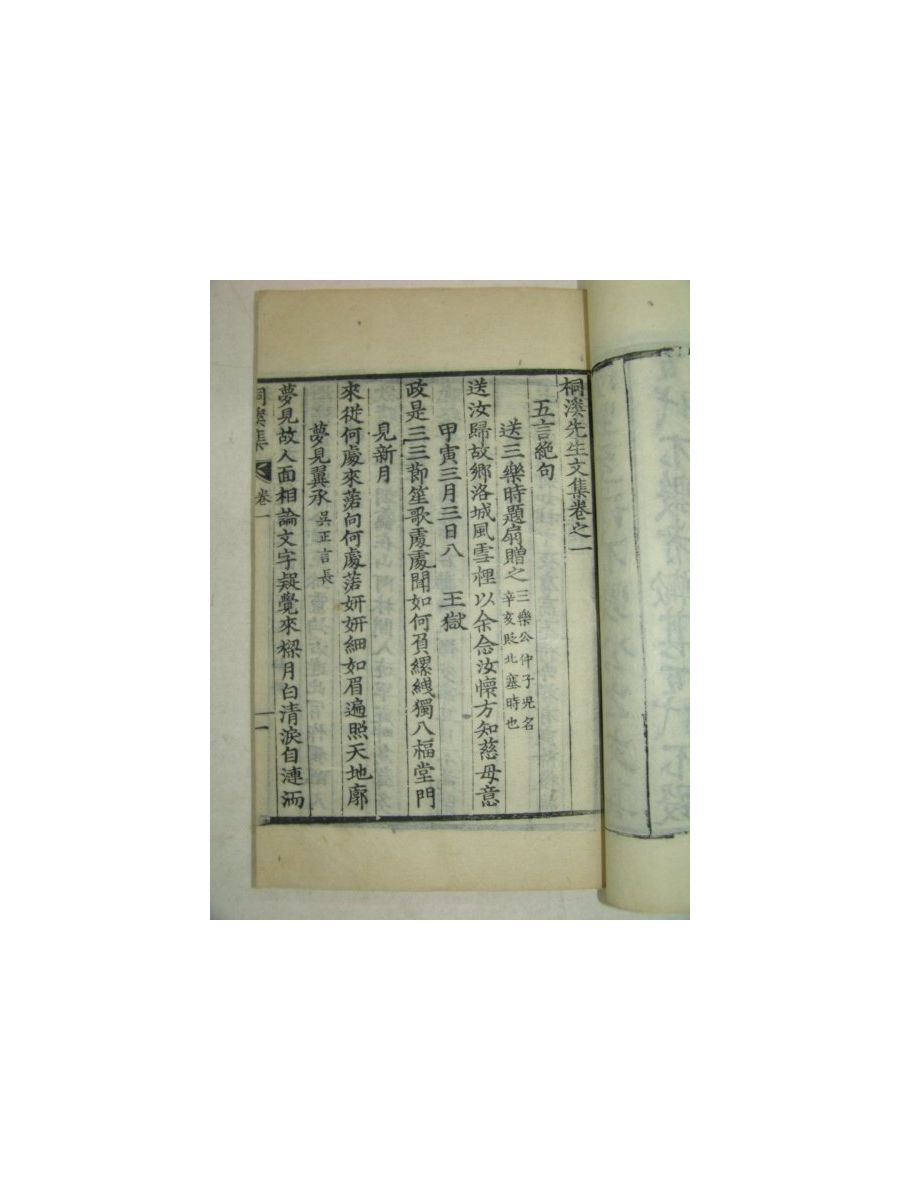 桐溪先生文集卷之一
五言絶句
送三樂時題扇贈之 三樂公仲子兒名
辛亥貶北塞時也
送汝歸故鄉洛城風雪裡以余念汝懷方知慈母意
甲寅三月三日入 王獄
政是三三節笙歌處處聞如何負縲絏獨入福堂門
見新月
來從何處來落向何處落姸姸細如眉遍照天地廓
夢見翼承 吳正言長
夢見故人面相論文字疑覺來樑月白淸淚自漣洏
桐溪集 卷一 一